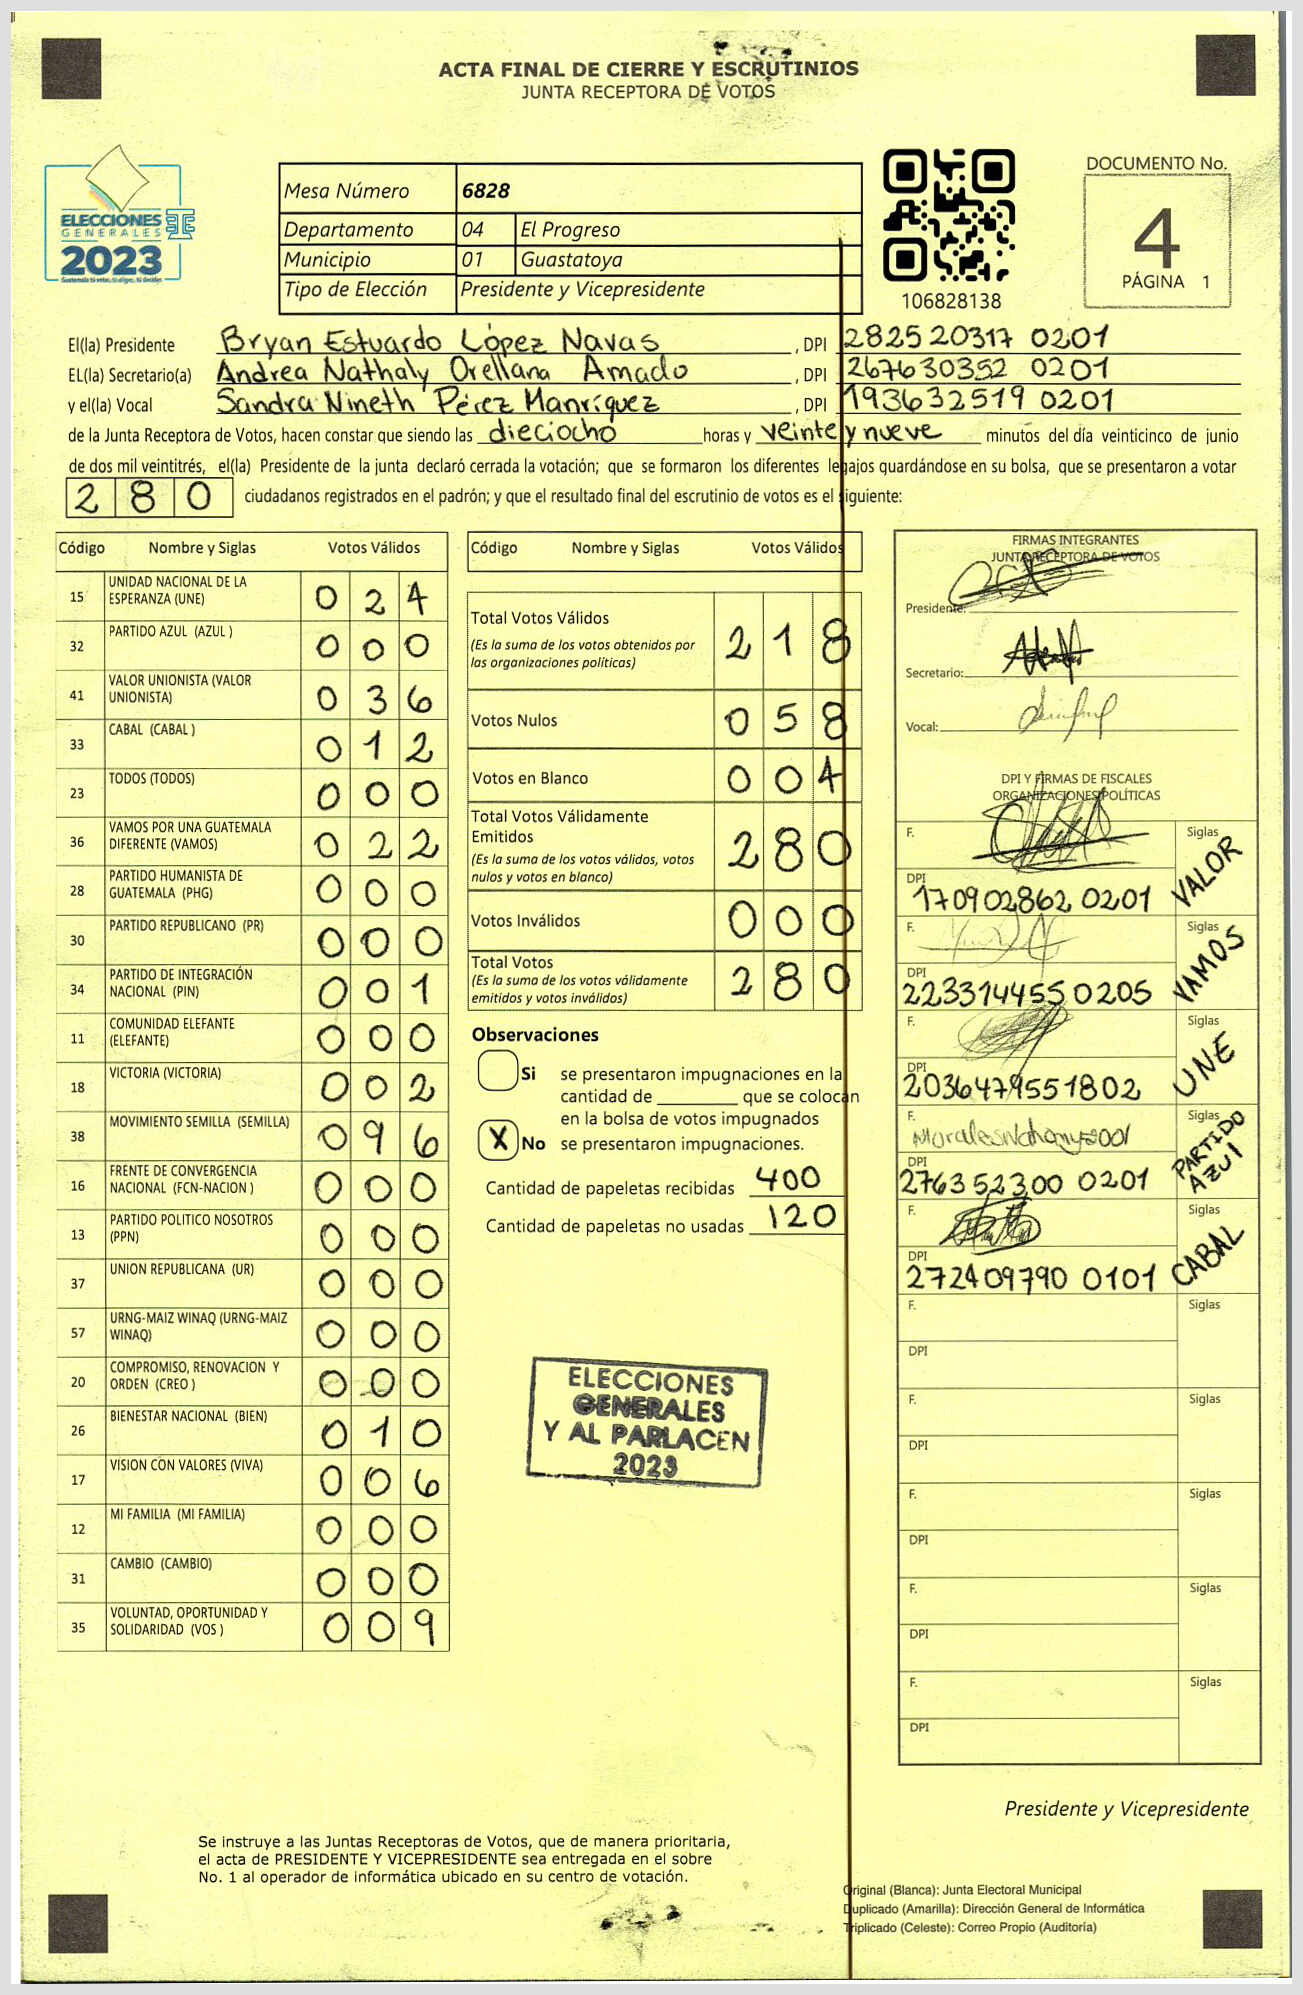 ACTA FINAL DE CIERRE Y ESCRUTINIOS
JUNTA RECEPTORA DE VOTOS
ELECCIONES
GENERALES
2023
Mesa Número 6828
Departamento 04 El Progreso
Municipio 01 Guastatoya
Tipo de Elección Presidente y Vicepresidente
106828138
DOCUMENTO No.
4
PÁGINA 1
El(la) Presidente Bryan Estuardo López Navas, DPI 282520317 0201
EL(la) Secretario(a) Andrea Nathaly Orellana Amado, DPI 267630352 0201
y el(la) Vocal Sandra Nineth Pérez Manríquez, DPI 193632519 0201
de la Junta Receptora de Votos, hacen constar que siendo las dieciocho horas y veinte y nueve minutos del día veinticinco de junio
de dos mil veintitrés, el(la) Presidente de la junta declaró cerrada la votación; que se formaron los diferentes legajos guardándose en su bolsa, que se presentaron a votar
280 ciudadanos registrados en el padrón; y que el resultado final del escrutinio de votos es el siguiente:
Código Nombre y Siglas Votos Válidos
15 UNIDAD NACIONAL DE LA ESPERANZA (UNE) 024
32 PARTIDO AZUL (AZUL ) 000
41 VALOR UNIONISTA (VALOR UNIONISTA) 036
33 CABAL (CABAL ) 012
23 TODOS (TODOS) 000
36 VAMOS POR UNA GUATEMALA DIFERENTE (VAMOS) 022
28 PARTIDO HUMANISTA DE GUATEMALA (PHG) 000
30 PARTIDO REPUBLICANO (PR) 000
34 PARTIDO DE INTEGRACIÓN NACIONAL (PIN) 001
11 COMUNIDAD ELEFANTE (ELEFANTE) 000
18 VICTORIA (VICTORIA) 002
38 MOVIMIENTO SEMILLA (SEMILLA) 096
16 FRENTE DE CONVERGENCIA NACIONAL (FCN-NACION ) 000
13 PARTIDO POLITICO NOSOTROS (PPN) 000
37 UNION REPUBLICANA (UR) 000
57 URNG-MAIZ WINAQ (URNG-MAIZ WINAQ) 000
20 COMPROMISO, RENOVACION Y ORDEN (CREO ) 000
26 BIENESTAR NACIONAL (BIEN) 010
17 VISION CON VALORES (VIVA) 006
12 MI FAMILIA (MI FAMILIA) 000
31 CAMBIO (CAMBIO) 000
35 VOLUNTAD, OPORTUNIDAD Y SOLIDARIDAD (VOS ) 009
Código Nombre y Siglas Votos Válidos
Total Votos Válidos 218
(Es la suma de los votos obtenidos por
las organizaciones políticas)
Votos Nulos 058
Votos en Blanco 004
Total Votos Válidamente
Emitidos 280
(Es la suma de los votos válidos, votos
nulos y votos en blanco)
Votos Inválidos 000
Total Votos 280
(Es la suma de los votos válidamente
emitidos y votos inválidos)
Observaciones
Si se presentaron impugnaciones en la
cantidad de ________ que se colocán
en la bolsa de votos impugnados
X No se presentaron impugnaciones.
Cantidad de papeletas recibidas 400
Cantidad de papeletas no usadas 120
ELECCIONES
GENERALES
Y AL PARLACEN
2023
FIRMAS INTEGRANTES
JUNTA RECEPTORA DE VOTOS
Presidente:
Secretario:
Vocal:
DPI Y FIRMAS DE FISCALES
ORGANIZACIONES POLÍTICAS
F. Siglas VALOR
DPI 170902862 0201
F. Siglas VAMOS
DPI 223314455 0205
F. Siglas UNE
DPI 2036479551802
F. Siglas PARTIDO AZUL
DPI 276352300 0201
F. Siglas CABAL
DPI 272409790 0101
F. Siglas
DPI
F. Siglas
DPI
F. Siglas
DPI
F. Siglas
DPI
F. Siglas
DPI
Presidente y Vicepresidente
Se instruye a las Juntas Receptoras de Votos, que de manera prioritaria,
el acta de PRESIDENTE Y VICEPRESIDENTE sea entregada en el sobre
No. 1 al operador de informática ubicado en su centro de votación.
Original (Blanca): Junta Electoral Municipal
Duplicado (Amarilla): Dirección General de Informática
Triplicado (Celeste): Correo Propio (Auditoría)